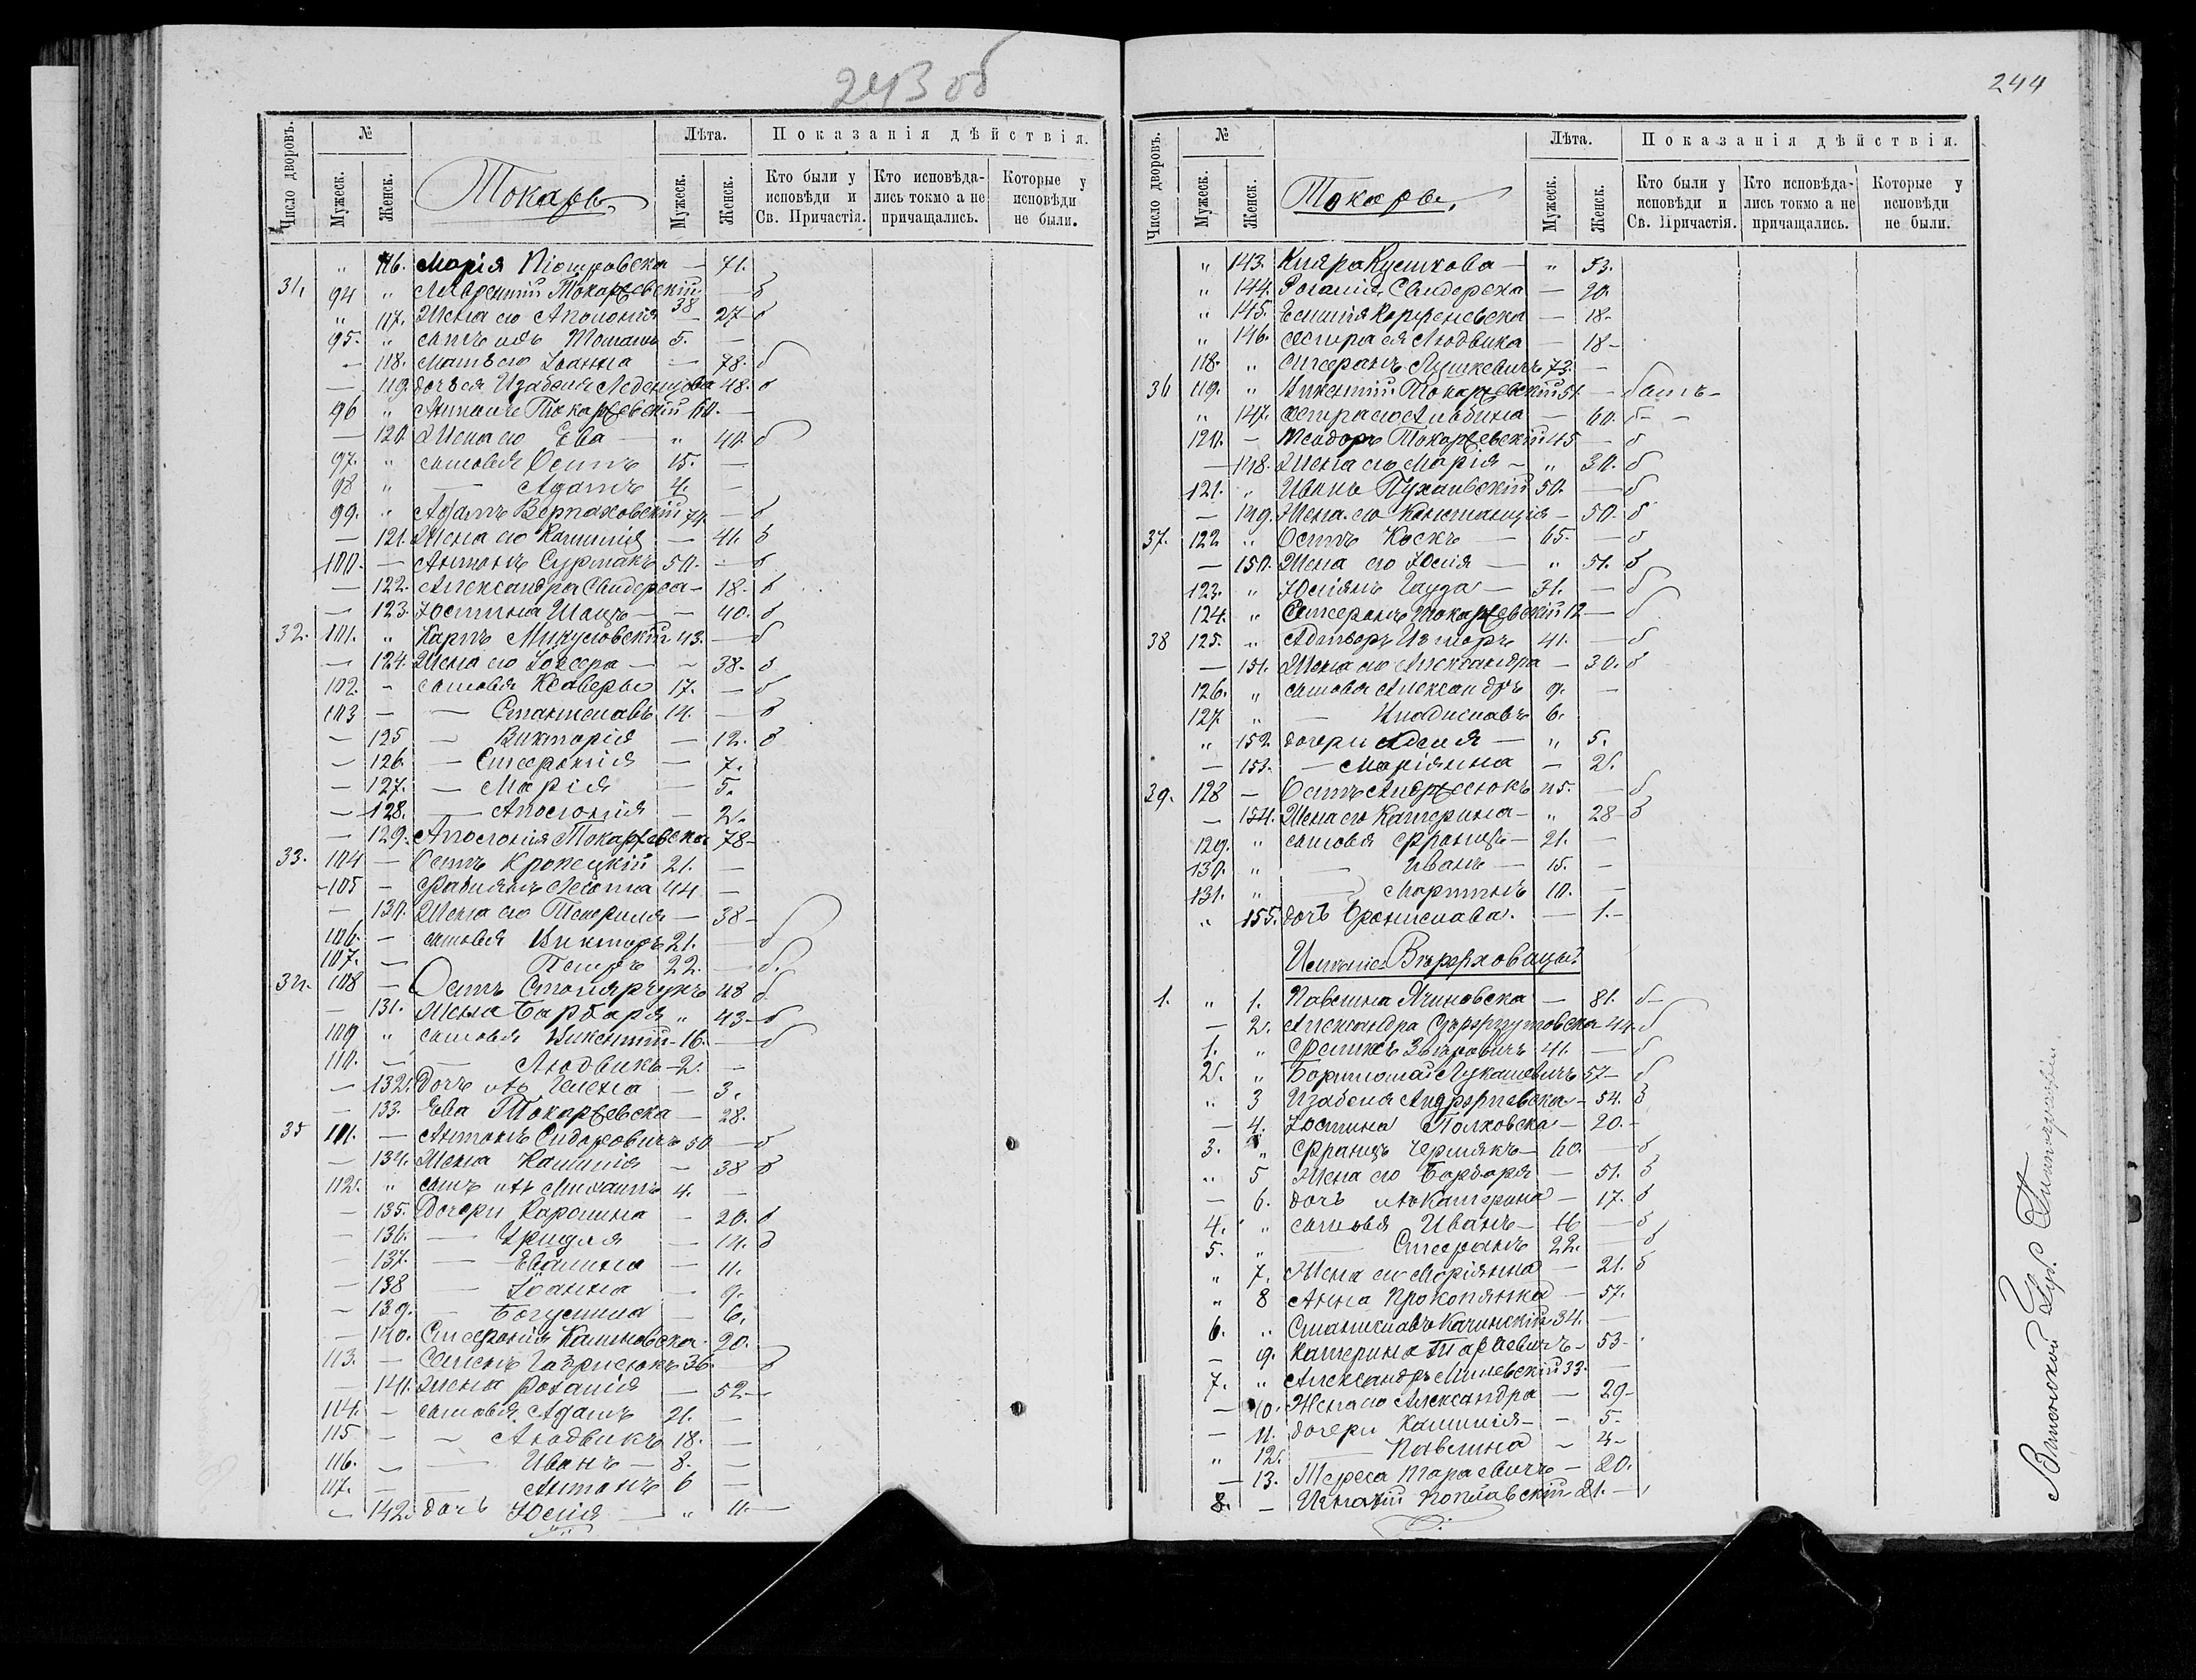 243 об
Число дворовъ. № Лѣта. Показанія дѣйствія.
Мужеск. Женск. Токари Мужеск. Женск. Кто были у исповѣди и Св. Причастія. Кто исповѣдались токмо а не причащались. Которые у исповѣди не были.
" 116. Марія Піотровска — 71.
31. 94 " Лаврентій Токаржевскій 38 — б
" 117. Жена его Аполонія — 27 б
95. " сынъ ихъ Томашъ 5. —
— 118. Мать его Іоанна — 78. б
— 119. дочь ея Изабеля 48. б
96 " Антонъ Токаржевскій 60. —
— 120. Жена его Ева — " 40. б
97. " сыновья Осипъ 15. —
98 " — Адамъ 4. —
99. " Адамъ 74. — б
— 121. Жена его Камилія — 41. б
100. — Антонъ Сурмакъ 50. — б
— 122. Александра Свидерса — 18. б
— 123. Юстина — 40. б
32. 101. " Карпъ 43. — б
— 124. Жена его Іозефа — 38. б
102. " сыновья Ксаверы 17. — б
103 — — Станиславъ 14. — б
— 125 — Викторія — 12. б
— 126. — Стефанія — 7.
— 127. — Марія — 5.
— 128. — Аполонія — 2.
— 129. Аполонія Токаржевска 78 —
33. 104 — Осипъ Кропецкій 21. —
105 — Фабіянъ 44 —
— 130. Жена его — 38 —
106. — сыновья Викторъ 21. — б
107. — Петръ 22. — б.
34. 108 — Осипъ Столярчукъ 48 б
— 131. Жена Барбара " 43 — б
109 " сыновья Викентій 16. — б
110. — — Людвикъ 2. —
— 132. Дочь ихъ Гелена — 3.
— 133. Ева Токаржевска — 28.
35 111. — Антонъ Сидоровичъ 50 — б
— 134. Жена Камилія — 38 б
112. " сынъ ихъ Михаилъ 4. —
— 135. Дочери Каролина — 20. б
— 136. — Урщуля — 14. б
— 137. — Евалина — 11.
— 138 — Іоанна — 9.
— 139. — Богумила — 6.
— 140. Стефанія Калиновска — 20.
113. — Семенъ Гаврисюкъ 36. — б
— 141. Жена Розалія — 52 —
114. — сыновья Адамъ 21. —
115 — — Людвикъ 18. —
116. — — Иванъ — 8. —
117. — — Антонъ 6 —
— 142. дочь Юлія — " 11. —
244
Число дворовъ. № Лѣта. Показанія дѣйствія.
Мужеск. Женск. Токари. Мужеск. Женск. Кто были у исповѣди и Св. Причастія. Кто исповѣдались токмо а не причащались. Которые у исповѣди не были.
" 143. Кляра — " 53.
" 144. Розалія Свидерска — 20.
" 145. Емилія — 18 —
" 146. сестра ея Людвика — 18 —
118. " Стефанъ 73. —
36 119. " Викентій Токаржевскій 51. —
" 147. сестра его Альбина — 60. б — —
120. — Теодоръ Токаржевскій 45 — б
— 148. Жена его Марія — " 30. б
121. " Иванъ 50. — б
— 149. Жена его Констанція — 50. б
37. 122 " Осипъ Коскъ — 65. — б
— 150. Жена его Юлія — " 51. б
123. " Юліянъ Гауда — 31. — б
124. " Стефанъ Токаржевскій 12 — б
38 125. " 41. — б
— 151. Жена его Александра — 30. б
126. " сыновья Александръ 9. —
127. " — Владиславъ 6.
" 152. дочери Аделя — " 5.
— 153. — Маріянна — 2.
39. 128 — Осипъ Андржеюкъ 45. — б
— 154. Жена его Катерина — " 28 — б
129. " сыновья Францъ — 21. —
130. " — Иванъ — 15. —
131. " — Мартинъ 10. —
" 155. дочь Брониславa. — 1. —
1. " 1. Павлина — 81. б —
— 2. Александра — 44. б
1. " 41. — б
2. " Бартоломей Лукашевичъ 57 — б
" 3 Изабеля — 54. б
— 4. Юстина — 20. —
3. " Францъ Чернякъ — 60. — б
" 5 Жена его Барбара — 51. б
— 6. дочь ихъ Катерина — 17. б
4. " сыновья Иванъ — 16 — б
5. " — Стефанъ 22. — б
" 7. Жена его Маріянна — 21. б
" 8 Анна Прокопянка — 57.
6. " Станиславъ Качинскій 34. —
— 9. Катерина Тарасевичъ — 53 —
7. " Александръ Милевскій 33. —
— 10. Жена его Александра — 29 —
— 11. дочери Камилія — — 5 —
" 12. — Павлина — 4 —
— 13. Тереса Тарасевичъ — 20.
8. — Игнатій Поплавскій 21. —